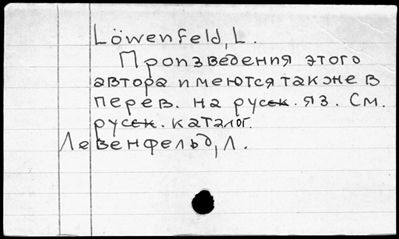 Löwenfeld, L.
Произведения этого
автора имеются также в
перев. на русск. яз. См.
русск. каталог.
Левенфельд, Л.